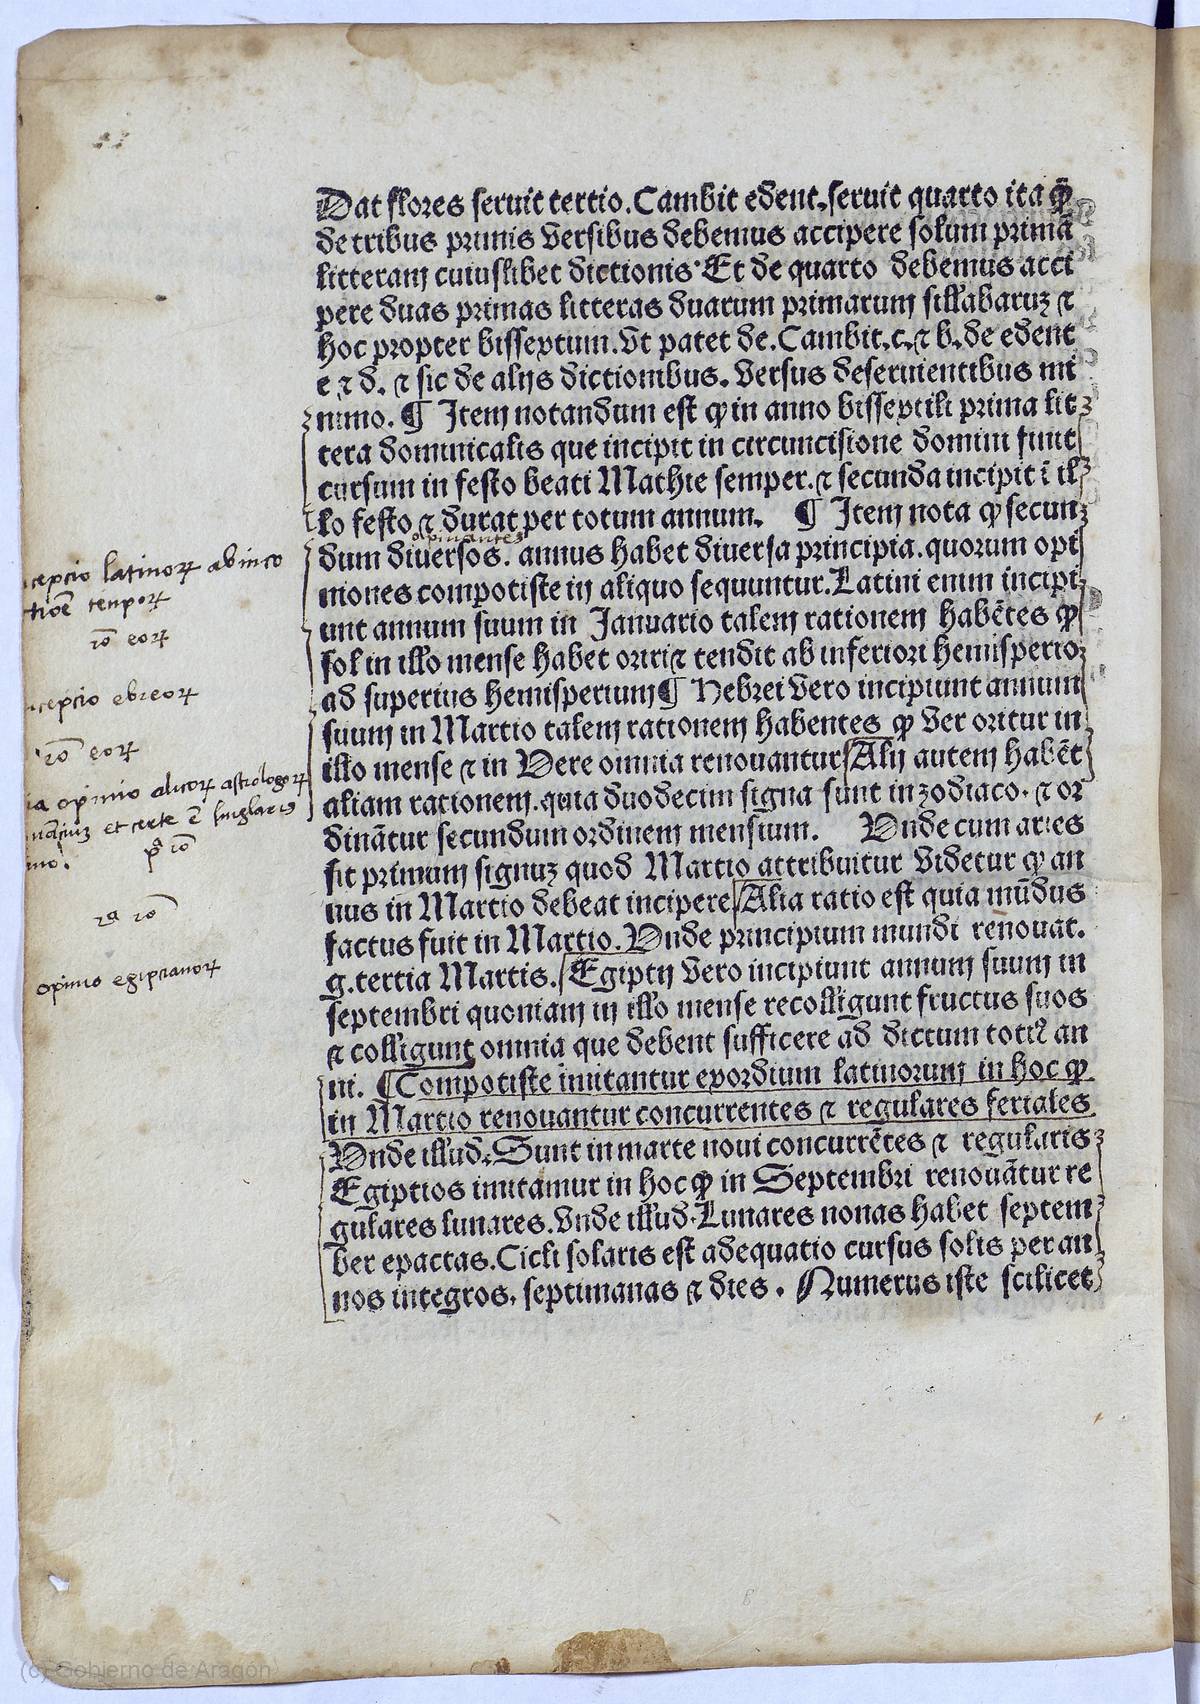 Dat flores seruit tertio. Cambit edent. seruit quarto ita ꝙ̃
de tribus primis versibus debemus accipere solum primã
litteram cuiuslibet dictionis. Et de quarto debemus acci
pere duas primas litteras duarum primarum sillabaruꝫ ⁊
hoc propter bissextum. Vt patet de. Cambit. c. ⁊ b. de edent
e ⁊ d. ⁊ sic de alijs dictionibus. Versus deseruientibus mi
nimo. ¶ Item notandum est ꝙ in anno bissextili prima lit
tera dominicalis que incipit in circuncisione domini finit
cursum in festo beati Mathie semper. ⁊ secunda incipit ĩ il
lo festo ⁊ durat per totum annum. ¶ Item nota ꝙ secun
opinantes
dum diuersos. annus habet diuersa principia. quorum opi
niones compotiste in aliquo sequuntur. Latini enim incipi
unt annum suum in Januario talem rationem habẽtes ꝙ
sol in illo mense habet oriri ⁊ tendit ab inferiori hemisperio
ad superius hemisperium ¶ Hebrei vero incipiunt annum
suum in Martio talem rationem habentes ꝙ Ver oritur in
illo mense ⁊ in Vere omnia renouantur Alij autem habẽt
aliam rationem. quia duodecim signa sunt in zodiaco. ⁊ or
dinãtur secundum ordinem mensium. Vnde cum aries
sit primum signuꝫ quod Martio attribuitur Videtur ꝙ an
nus in Martio debeat incipere Alia ratio est quia mũdus
factus fuit in Martio. Vnde principium mundi renouat.
g. tertia Martis. Egiptij vero incipiunt annum suum in
septembri quoniam in illo mense recolligunt fructus suos
⁊ colligunt omnia que debent sufficere ad dictum totiꝰ an
ni. ¶ Compotiste imitantur exordium latinorum in hoc ꝙ
in Martio renouantur concurrentes ⁊ regulares feriales
Vnde illud. Sunt in marte noui concurrẽtes ⁊ regularis
Egiptios imitamur in hoc ꝙ in Septembri renouãtur re
gulares lunares. Vnde illud. Lunares nonas habet septem
ber epactas. Cicli solaris est adequatio cursus solis per an
nos integros. septimanas ⁊ dies. Numerus iste scilicet
cepcio latinoꝝ ab inco
tiõe tenpoꝝ
rõ eoꝝ
cepcio ebreoꝝ
rõ eoꝝ
opinio alicoꝝ astrologoꝝ
et
pª rõ
2ª rõ
opinio egiptianoꝝ
(c) Gobierno de Aragón